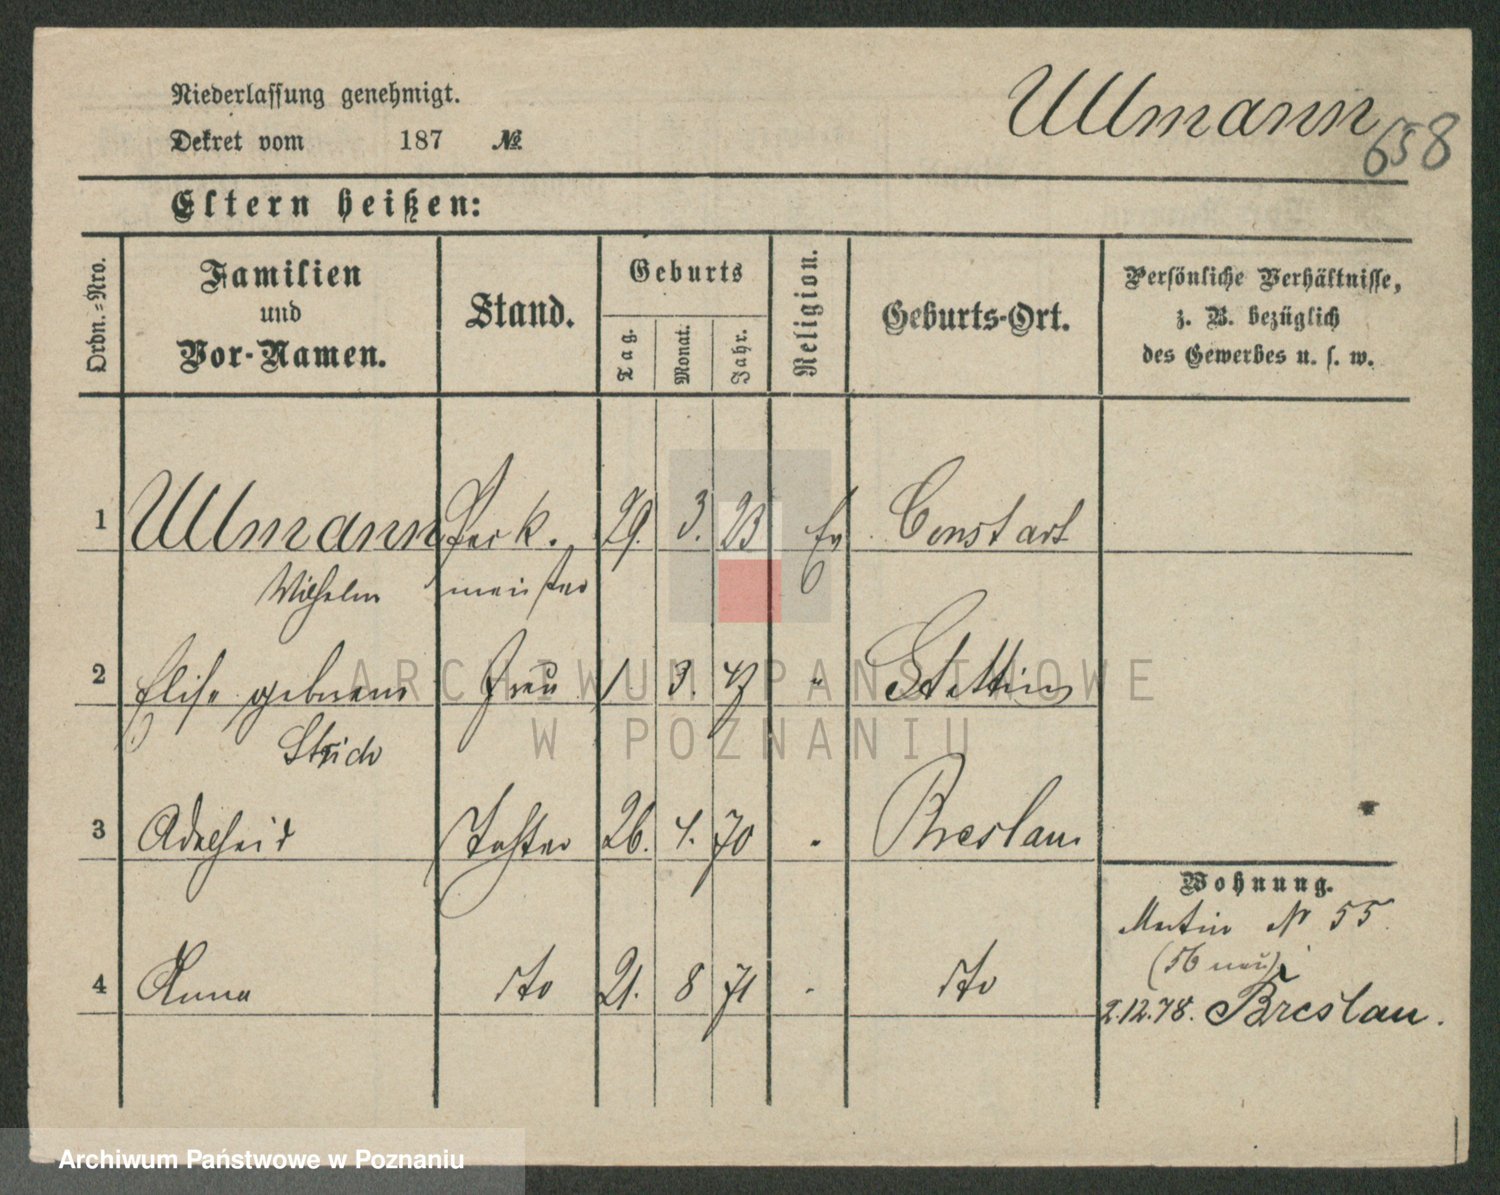 Niederlassung genehmigt.
Dekret vom 187 №
Ullmann
658
Eltern heißen:
Ordn.=Nro.
Familien
und
Vor-Namen.
Stand.
Geburts
Tag.
Monat.
Jahr.
Religion.
Geburts-Ort.
Persönliche Verhältnisse,
z. B. bezüglich
des Gewerbes u. s. w.
1 Ullmann Pack. 29. 3. 23 Ev
Wilhelm meister
2 Elise geborene Frau 1. 3. " Stettin
3 Adelheid Tochter 26. 4. 70 " Breslau
Wohnung.
Martin № 55.
(56 neu)
4 Anna dto 21. 8 71 " dto
2.12.78. Breslau.
ARCHIWUM PAŃSTWOWE
W POZNANIU
Archiwum Państwowe w Poznaniu